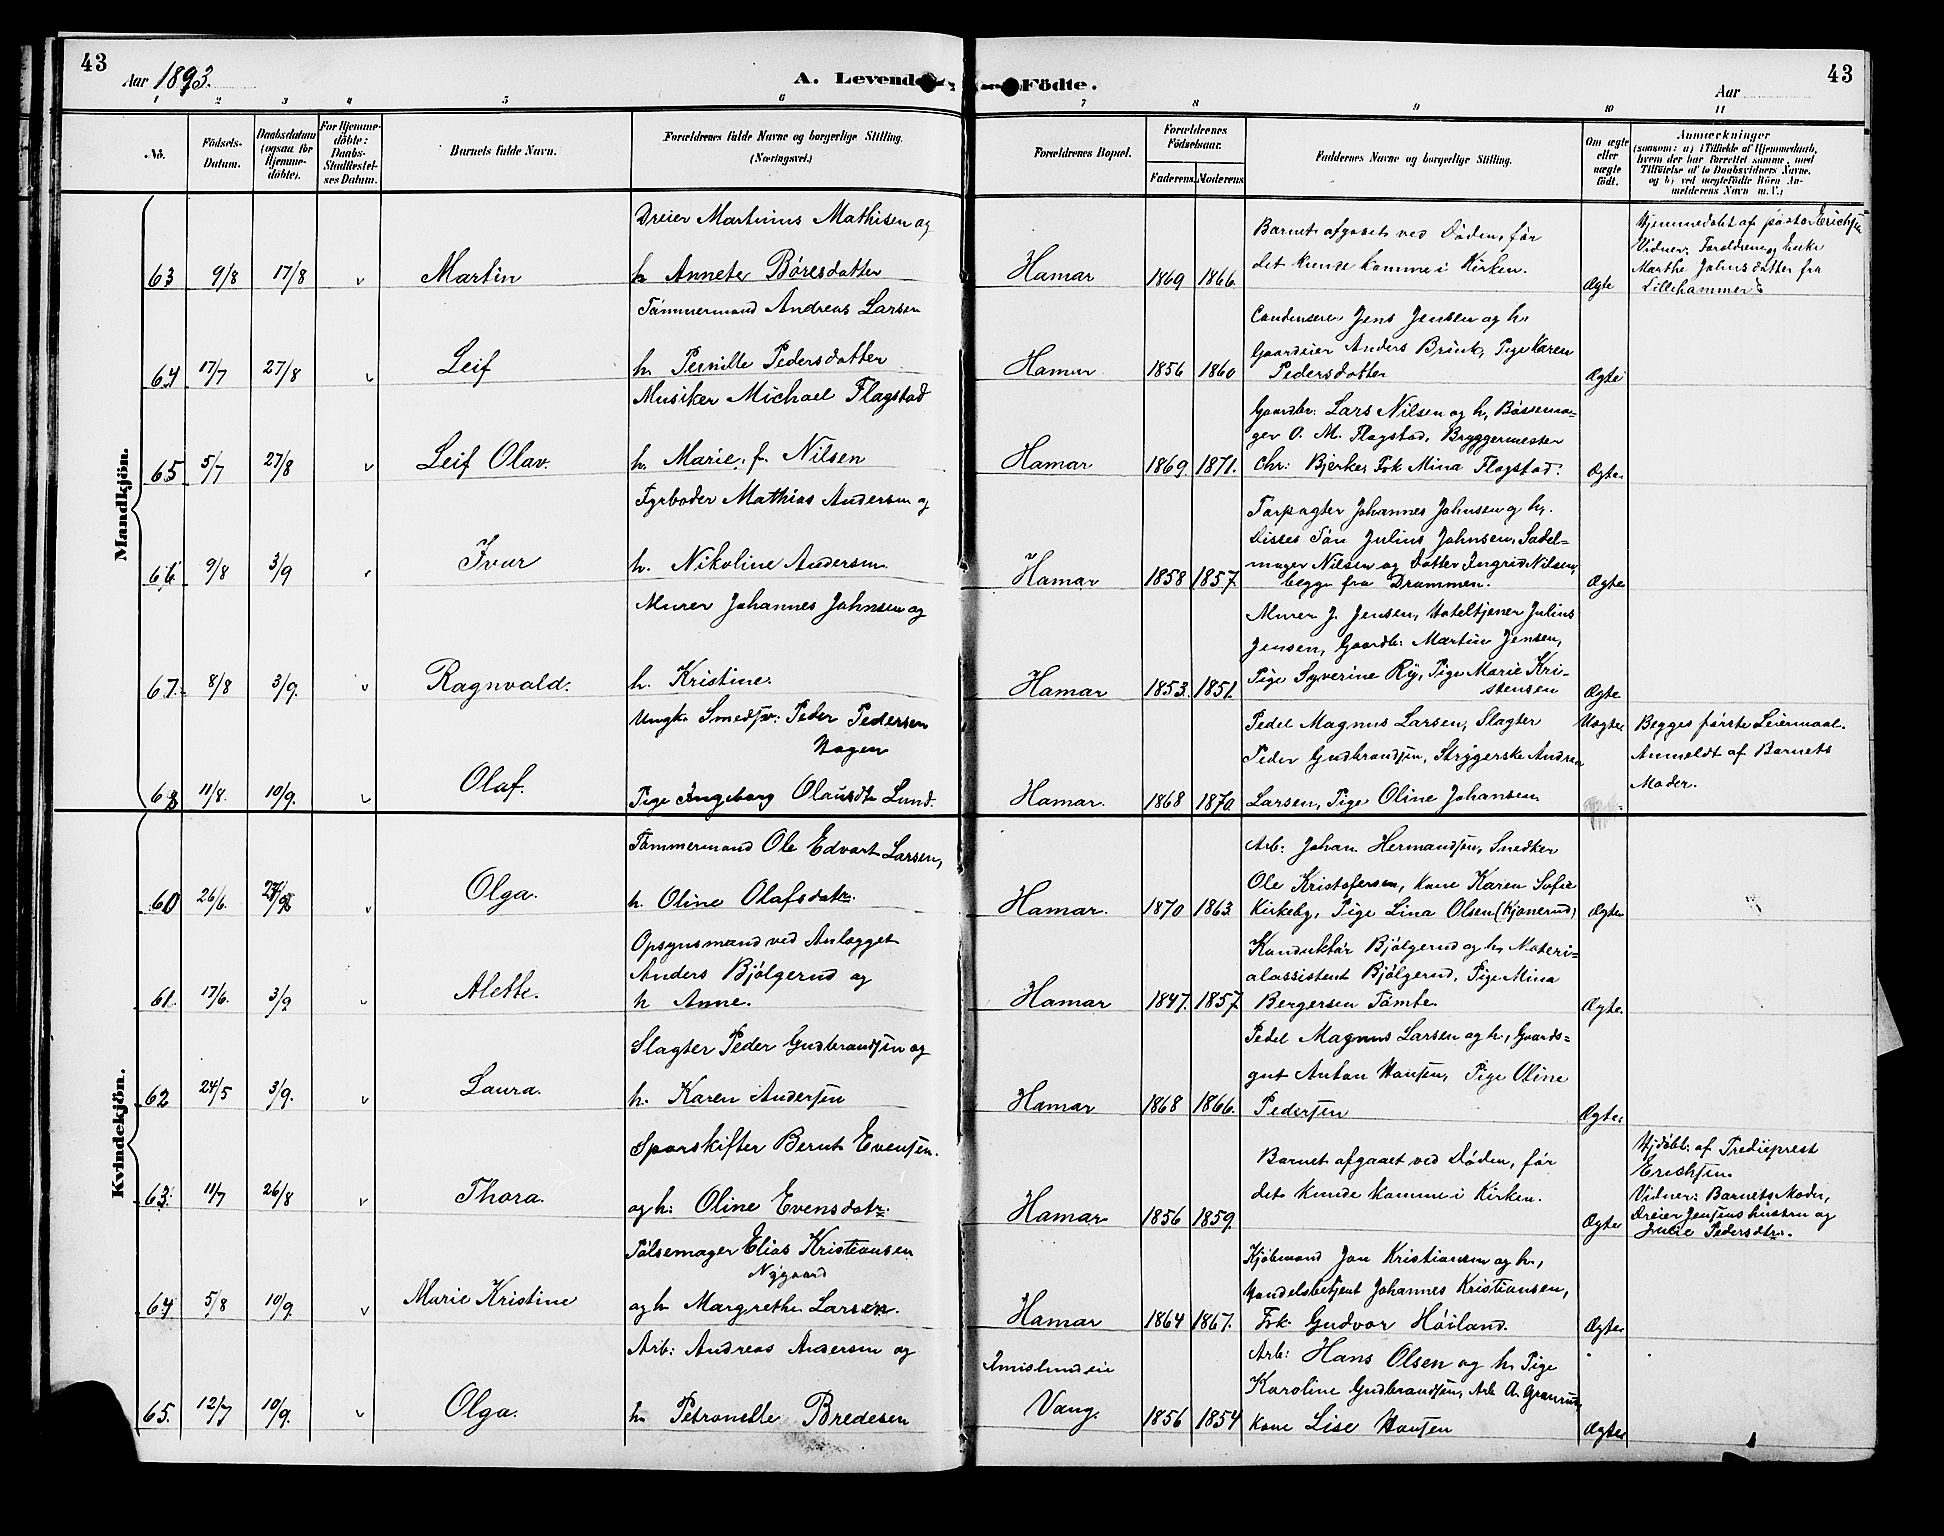 43
Aar 1893.
A. Levende Födte.
43
Aar
1 2 3 4 5 6 7 8 9 10 11
No.
Födsels-Datum.
Daabsdatum (ogsaa for Hjemme-döbte).
For Hjemme-döbte: Daabs-Stadfæstel-ses Datum.
Barnets fulde Navn.
Forældrenes fulde Navne og borgerlige Stilling. (Næringsvei.)
Forældrenes Bopæl.
Forældrenes Födselsaar.
Faderens. Moderens.
Faddernes Navne og borgerlige Stilling.
Om ægte eller uægte födt.
Anmærkninger
(saasom: a) i Tilfælde af Hjemmedaab, hvem der har forrettet samme, med Tilföielse af to Daabsvidners Navne, og b) ved uægtefödte Börn An-melderens Navn m. V.)
Mandkjön.
63 9/8 17/8 v Martin
Dreier Martinius Mathisen og
h. Annete Børesdatter
Hamar 1869 1866.
Barnet afgaaet ved Døden, før
det kunde komme i Kirken.
Ægte
Hjemmedøbt af pastor Erichsen
Vidner: Forældrene og Enke
Marthe Johnsdatter fra
Lillehammer
64 17/7 27/8 v Leif
Tømmermand Andreas Larsen
h. Pernille Pedersdatter
Hamar 1856 1860
Condensere Jens Jensen og h.
Gaardeier Anders Brink, Pige Karen
Pedersdatter
Ægte
65 5/7 27/8 v Leif Olav.
Musiker Michael Flagstad
h. Marie, f. Nilsen
Hamar 1869. 1871.
Gaardbr: Lars Nilsen og h, Bøssema-
ger O. M. Flagstad, Bryggermester
Chr: Bjerke, Frk Mina Flagstad.
Ægte.
66 9/8 3/9 v Ivar
Fyrbøder Mathias Andersen og
h. Nikoline Andersen
Hamar 1858 1857.
Forpagter Johannes Johnsen og h.
Disses Søn Julius Johnsen, Sadel-
mager Nilsen og Datter Ingrid Nilsen,
begge fra Drammen.
Ægte
67. 8/8 3/9. v Ragnvald.
Murer Johannes Johnsen og
h. Kristine.
Hamar 1853. 1851.
Murer J. Jensen, Hoteltjener Julius
Jensen, Gaardb: Martin Jensen,
Pige Syverine Ry, Pige Marie Kri-
stensen
Ægte
68 11/8. 10/9. v Olaf.
Ungk. Smedsv: Peder Pedersen
Hagen
Pige Ingeborg Olausdtr Lund.
Hamar. 1868 1870.
Pedel Magnus Larsen, Slagter
Peder Gudbrandsen, Strygerske Andrea
Larsen, Pige Oline Johansen.
Uægte
Begges første Leiermaal.
Anmeldt af Barnets
Moder.
Kvindekjön.
60 26/6. v Olga.
Tømmermand Ole Edvart Larsen,
h. Oline Olafsdatr.
Hamar. 1870 1863.
Arb: Johan Hermandsen, Snedker
Ole Kristofersen, Kone Karen Sofie
Kirkeby, Pige Lina Olsen (Kjønerud)
Ægte
61. 17/6. 3/9 v Alette.
Opsynsmand ved Anlægget
Anders Bjølgerud og
h Anne.
Hamar 1847. 1857.
Konduktør Bjølgerud og h, Materi-
alassistent Bjølgerud, Pige Mina
Bergersen Tømte.
Ægte.
62 24/5 3/9. v Laura.
Slagter Peder Gudbrandsen og
h. Karen Andersen
Hamar 1868 1866.
Pedel Magnus Larsen og h., Gaards-
gut Anton Hansen, Pige Oline
Pedersen
Ægte.
63. 11/7 26/8 v Thora.
Sporskifter Bernt Evensen.
og h: Oline Evensdatr.
Hamar 1856 1859.
Barnet afgaaet ved Døden, før
det kunde komme i Kirken.
Ægte
Hjdøbt: af Trediepræst
Erichsen.
Vidner: Barnets Moder,
Dreier Jensens hustru og
Julie Pedersdtr.
64 5/8 10/9. v Marie Kristine
Pølsemager Elias Kristiansen
Nygaard
og h. Margrethe Larsen.
Hamar 1864 1867.
Kjøbmand Jon Kristiansen og h.,
Handelsbetjent Johannes Kristiansen,
Frk. Gudvor Høiland.
Ægte.
65. 12/7 10/9. v Olga.
Arb: Andreas Andersen og
h. Petronelle Bredesen
Vang. 1856 1854
Arb: Hans Olsen og h. Pige
Karoline Gudbrandsen, Arb A. Granrud,
Kone Lise Hansen
Ægte